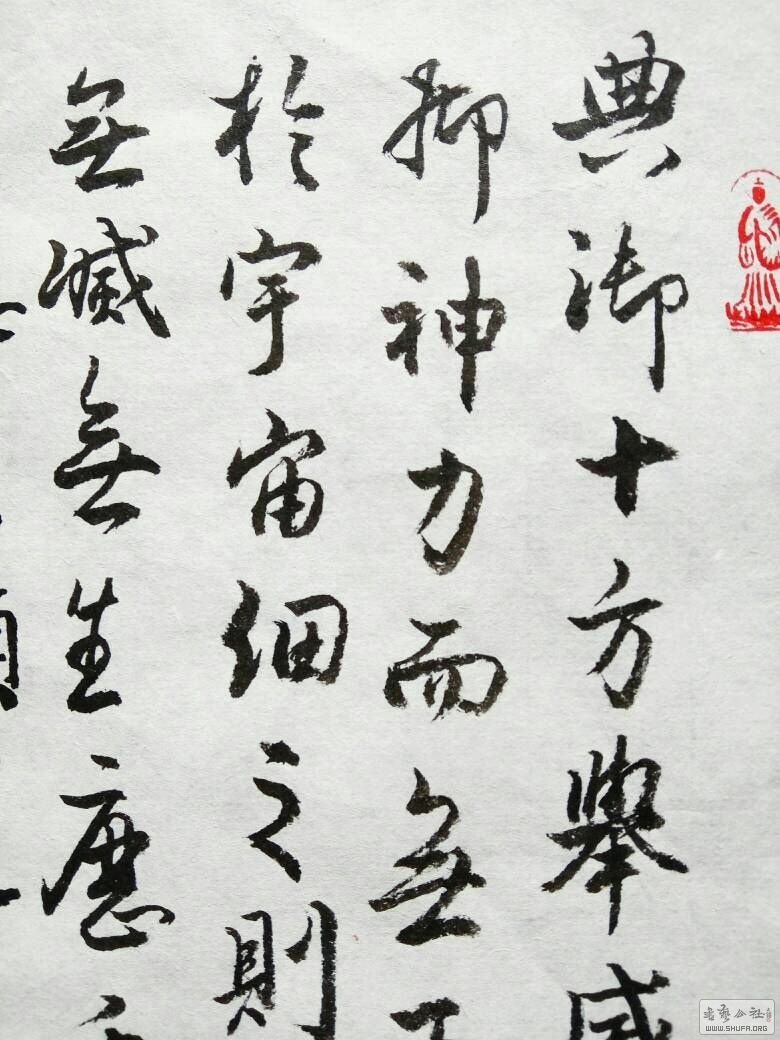 典御十方舉威
抑神力而無下
於宇宙細之則
無滅無生歷千
WWW.SHUFA.ORG